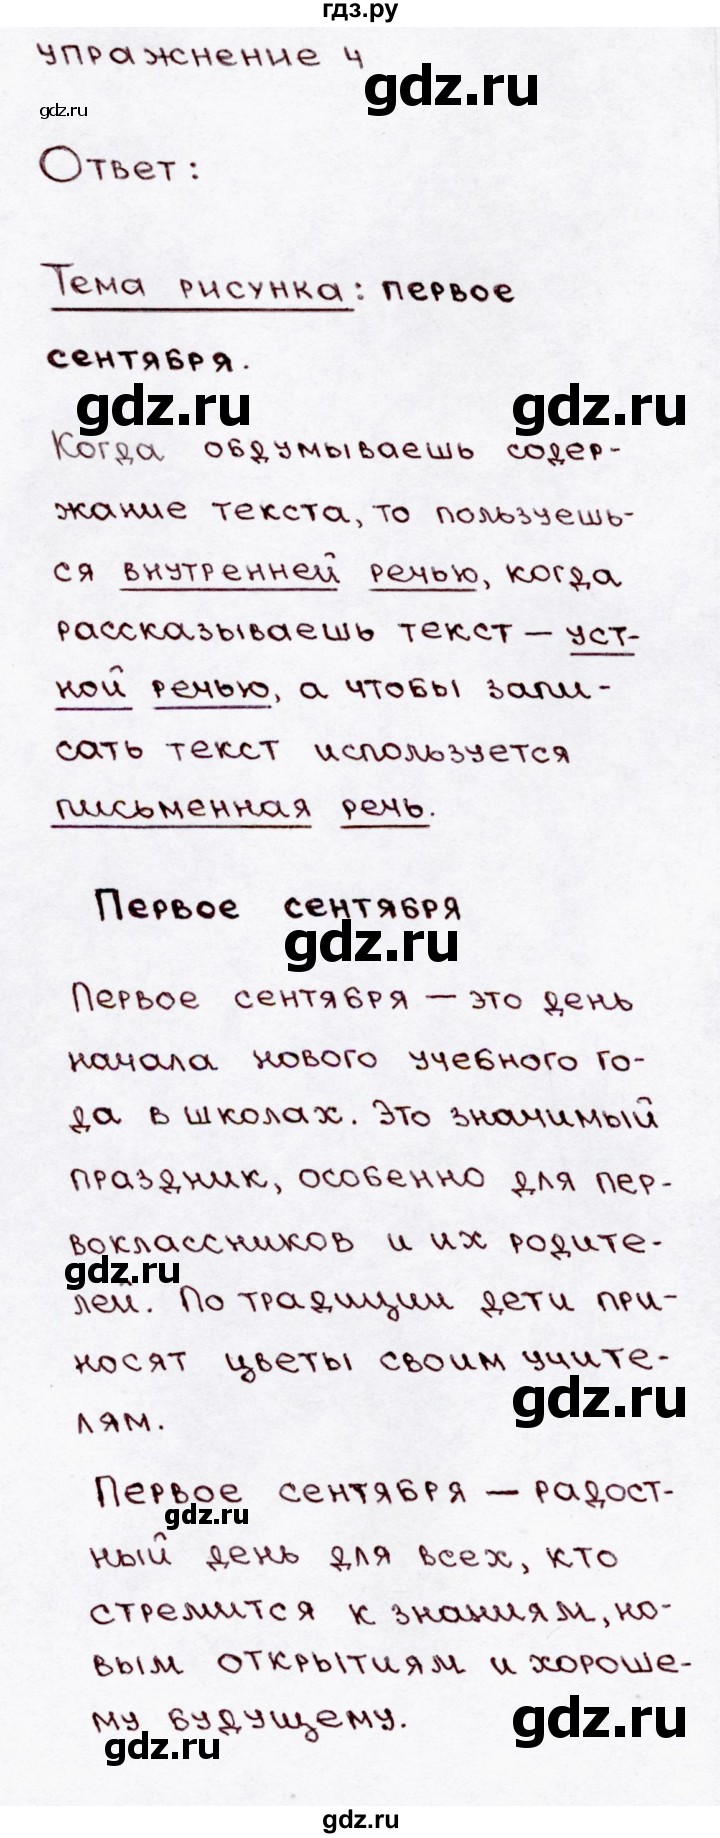 гдз.ру
упражнение 4
gdz.ru
gdz.ru
Ответ:
Тема рисунка: первое
сентября.
gdz.ru
gdz.ru
Когда обдумываешь содер-
жание текста, то пользуешь-
ся внутренней речью, когда
рассказываешь текст — уст-
ной речью, а чтобы запи-
сать текст используется
письменная речь.
Первое сентября
gdz.ru
Первое сентября — это день
начала нового учебного го-
да в школах. Это значимый
праздник, особенно для пер-
воклассников и их родите-
gdz.ru
лей. По традиции дети при-
носят цветы своим учите-
gdz.ru
лям.
Первое сентября — радост-
gdz.ru
ный день для всех, кто
стремится к знаниям, но-
вым открытиям и хороше-
му будущему.
gdz.ru
gdz.ru
gdz.ru